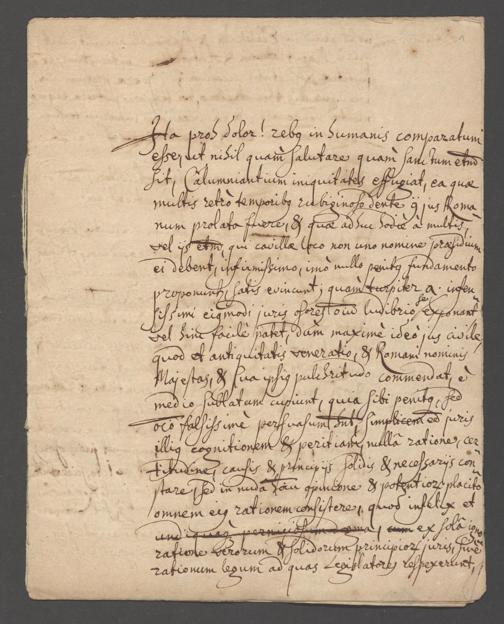 Ita proh dolor! rebq in humanis comparatum
esse, ut nihil quàm salutare quàm sanctum etm
sit, Calumniantium iniquitates effugiat, ea quæ
multis retrò temporibq rubiginoso dente in jus Roma
num prolata fuere, & quæ adhuc hodie à multis
vel ijs etm qui cavillæ loco non uno nomine præsidium
ei debent, infirmissimo, imò nullo penitq fundamento
proponunt, satis evincunt, quàm turpiter a. infen
sissimi ejusmodi juris osores ludibrio se exponant
vel hinc facilè patet, dum maximè ideò jus civile,
quod et antiquitatis veneratio, & Romani nominis
Majestas, & sua ipsiq pulchritudo commendat, è
medio sublatum cupiunt, quia sibi penitq, sed
falsissimè persuasum hnt simplicem juris
illiq cognitionem & peritiam nullâ ratione, cer
titudine, causis & principijs solidis & necessarijs con
stare, sed in nudâ opinione & potentior placito
omnem ejq rationem consistere, quod infelix et
ex solâ igno
ratione verorum & solidorum principior juris, sive
rationum legum ad quas Legislatores respexerunt,